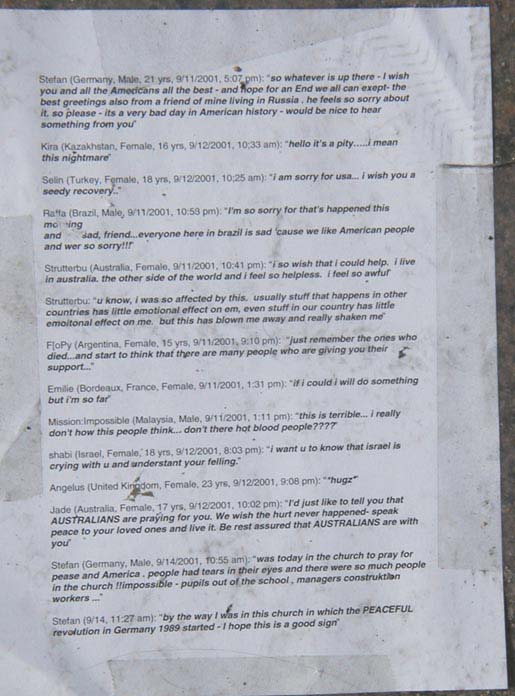 Stefan (Germany, Male, 21 yrs, 9/11/2001, 5:07 pm): "so whatever is up there - I wish
you and all the Americans all the best - and hope for an End we all can exept- the
best greetings also from a friend of mine living in Russia . he feels so sorry about
it. so please - its a very bad day in American history - would be nice to hear
something from you"
Kira (Kazakhstan, Female, 16 yrs, 9/12/2001, 10;33 am): "hello it's a pity.....i mean
this nightmare"
Selin (Turkey, Female, 18 yrs, 9/12/2001, 10;25 am): "i am sorry for usa... i wish you a
seedy recovery.."
Raffa (Brazil, Male, 9/11/2001, 10:58 pm): "I'm so sorry for that's happened this
and sad, friend...everyone here in brazil is sad 'cause we like American people
and wer so sorry!!!"
Strutterbu (Australia, Female, 9/11/2001, 10:41 pm): "i so wish that i could help. i live
in australia. the other side of the world and i feel so helpless. i feel so awful"
Strutterbu: "u know, i was so affected by this. usually stuff that happens in other
countries has little emotional effect on em, even stuff in our country has little
emoitonal effect on me. but this has blown me away and really shaken me"
F[oPy (Argentina, Female, 15 yrs, 9/11/2001, 9:10 pm): "just remember the ones who
died...and start to think that there are many people who are giving you their
support..."
Emilie (Bordeaux, France, Female, 9/11/2001, 1:31 pm): "if i could i will do something
but i'm so far"
Mission:Impossible (Malaysia, Male, 9/11/2001, 1:11 pm): "this is terrible... i really
don't how this people think... don't there hot blood people????"
shabi (Israel, Female, 18 yrs, 9/12/2001, 8:03 pm): "i want u to know that israel is
crying with u and understant your felling."
Angelus (United Kingdom, Female, 23 yrs, 9/12/2001, 9:08 pm): "*hugz*"
Jade (Australia, Female, 17 yrs, 9/12/2001, 10:02 pm): "I'd just like to tell you that
AUSTRALIANS are praying for you. We wish the hurt never happened- speak
peace to your loved ones and live it. Be rest assured that AUSTRALIANS are with
you"
Stefan (Germany, Male, 9/14/2001, 10:55 am): "was today in the church to pray for
pease and America . people had tears in their eyes and there were so much people
in the church !!impossible - pupils out of the school , managers construktian
workers ..."
Stefan (9/14, 11:27 am): "by the way I was in this church in which the PEACEFUL
revolution in Germany 1989 started - I hope this is a good sign"